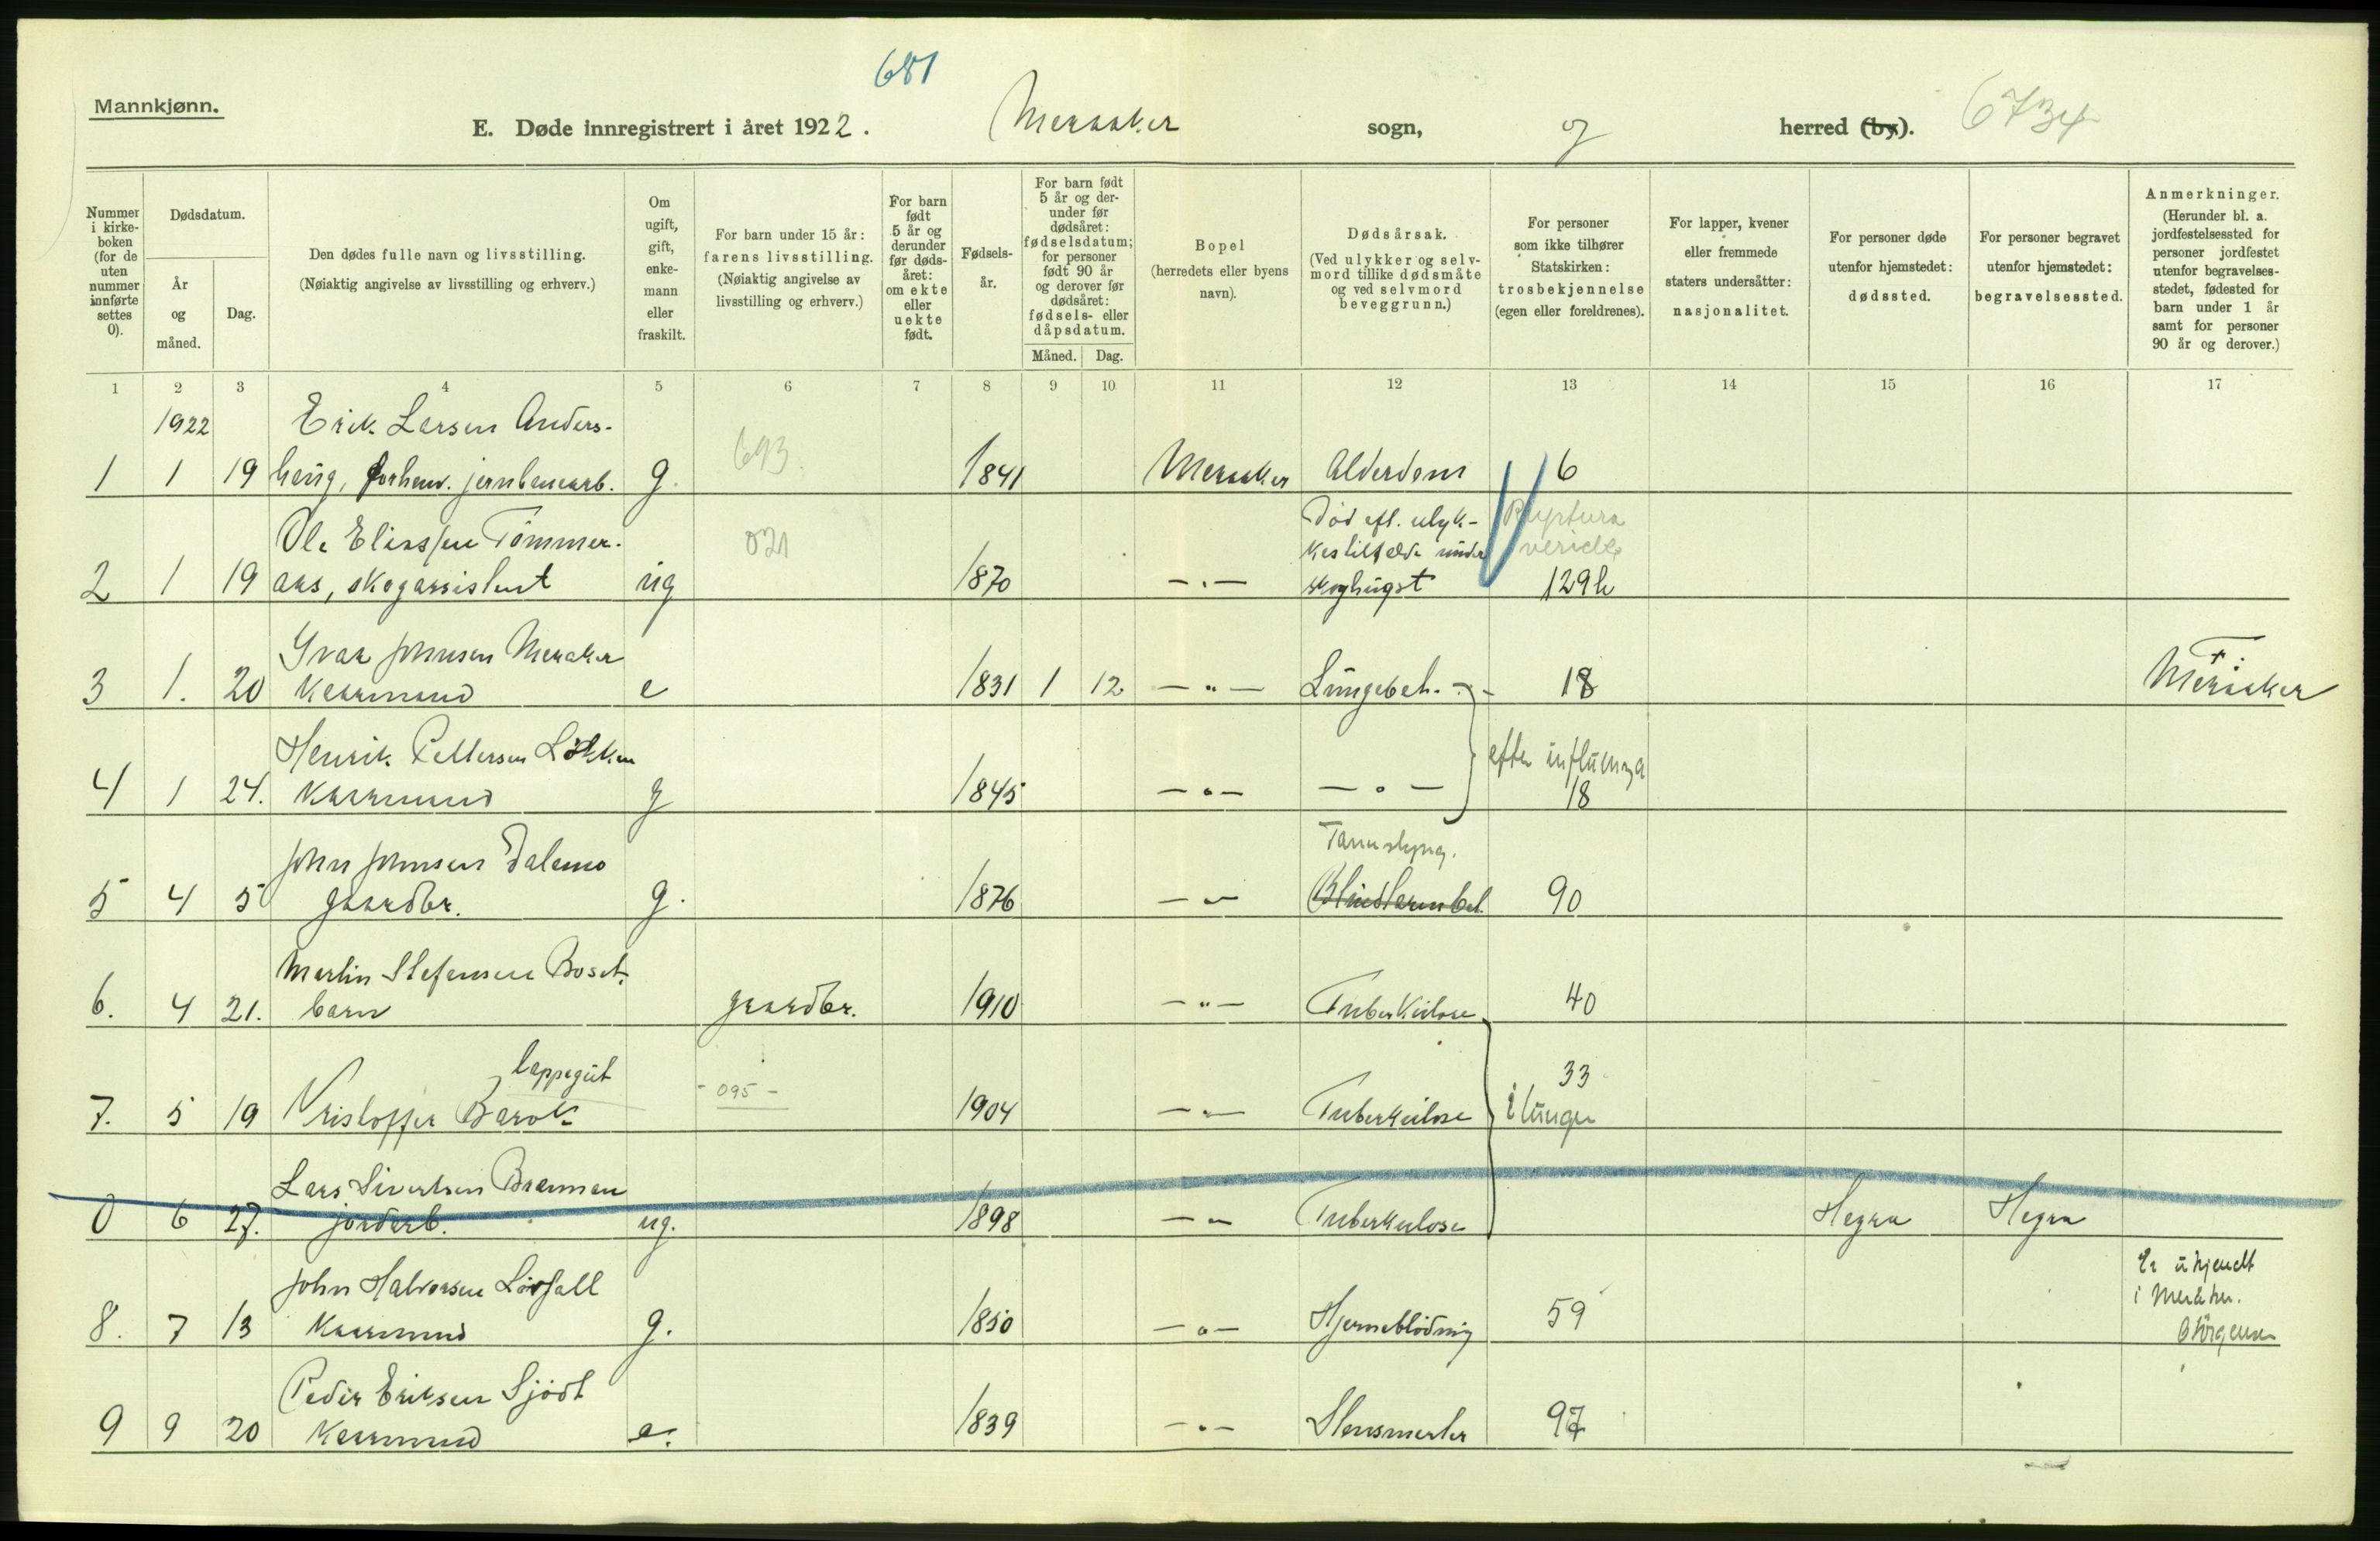 681
Mannkjønn.
E. Døde innregistrert i året 1922. Meraaker sogn, og herred (by). 673
Nummer i kirke-boken (for de uten nummer innførte settes 0).
Dødsdatum.
År og måned.
Dag.
Den dødes fulle navn og livsstilling.
(Nøiaktig angivelse av livsstilling og erhverv.)
Om ugift, gift, enke-mann eller fraskilt.
For barn under 15 år: farens livsstilling.
(Nøiaktig angivelse av livsstilling og erhverv.)
For barn født 5 år og derunder før døds-året: om ekte eller uekte født.
Fødsels-år.
For barn født 5 år og der-under før dødsåret: fødselsdatum; for personer født 90 år og derover før dødsåret: fødsels- eller dåpsdatum.
Måned. Dag.
Bopel
(herredets eller byens navn).
Dødsårsak.
(Ved ulykker og selv-mord tillike dødsmåte og ved selvmord beveggrunn.)
For personer som ikke tilhører Statskirken: trosbekjennelse (egen eller foreldrenes).
For lapper, kvener eller fremmede staters undersåtter: nasjonalitet.
For personer døde utenfor hjemstedet: dødssted.
For personer begravet utenfor hjemstedet: begravelsessted.
Anmerkninger.
(Herunder bl. a. jordfestelsessted for personer jordfestet utenfor begravelses-stedet, fødested for barn under 1 år samt for personer 90 år og derover.)
1 2 3 4 5 6 7 8 9 10 11 12 13 14 15 16 17
1922 Erik Larsen Anders-
693
1 1 19 haug, forhenv. jernbanearb. g. 1841 Meraaker Alderdom 6
Ole Eliassen Tømmer- 021 Død eft. ulyk- Ruptura
kestilfelde under
2 1 19 aas, skogassistent ug 1870 -"- skoghugst 129h
Ivar Johnsen Meraker
3 1. 20 Kaarmand e 1831 1 12 -"- Lungebet. - 18 F. Meraaker
Henrik Pettersen Løkken efter influenza
4 1 24. Kaarmand g 1845 -"- -"- 18
John Johnsen Dalemo
5 4 5 gaardbr. g. 1876 -"- Blindtarmbet. 90
Martin Stefansen Boset.
6. 4 21. barn gaardbr. 1910 -"- Tuberkulose 40
lappegut - 095 - 33
7. 5 19 Kristoffer Barok 1904 -"- Tuberkulose i lunger
Lars Sivertsen Brennan
0 6 27. jordarb. ug. 1898 -"- Tuberkulose Hegra Hegra
John Halvorsen Løvfall Er ukjendt
i Meraker.
8. 7 13 Kaarmand g. 1850 -"- Hjerneblødning 59
Peder Eriksen Sjødt
9 9 20 Kaarmand e. 1839 -"- Stensmerter 97